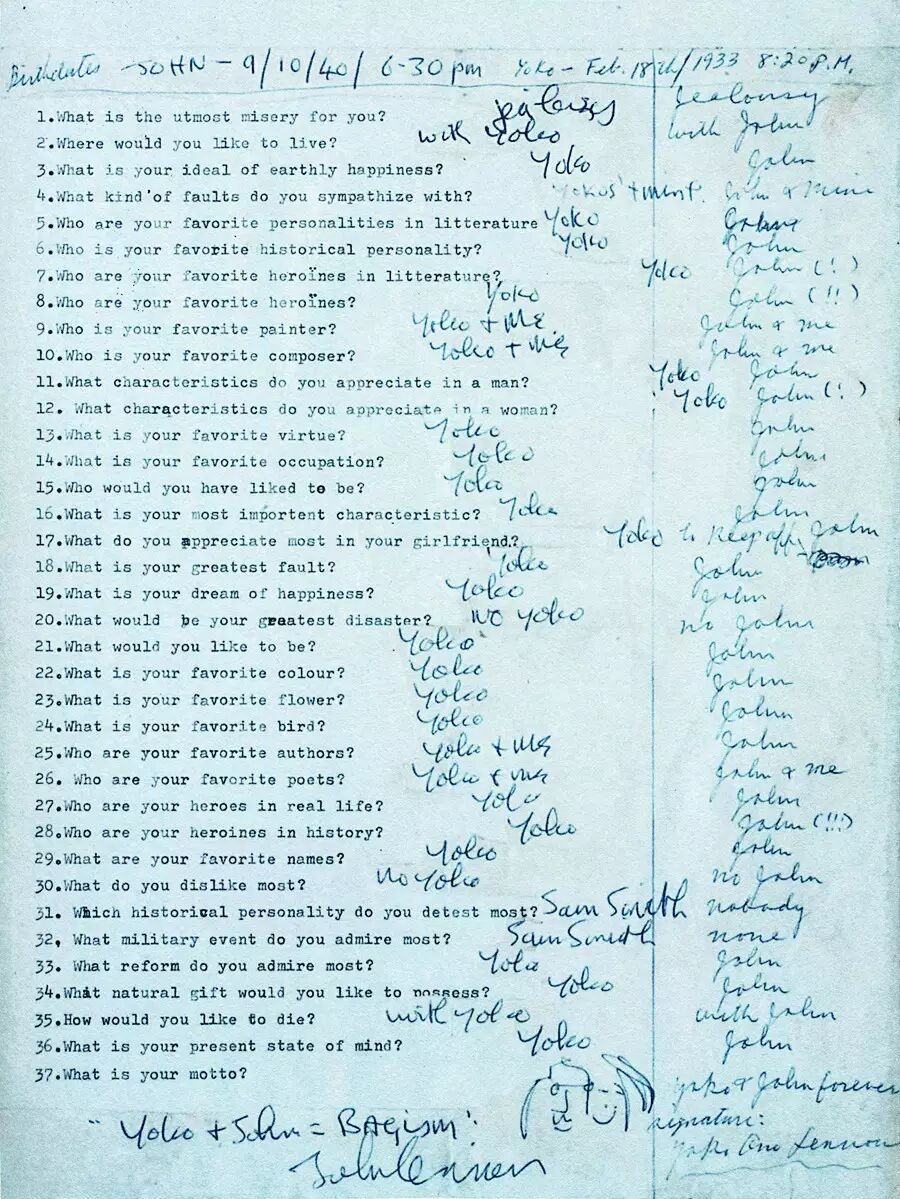 Birthdates - JOHN - 9/10/40/ 6-30pm Yoko - Feb. 18th/1933 8:20 P.M.
1.What is the utmost misery for you? jealousy Jealousy
2.Where would you like to live? with Yoko with John
3.What is your ideal of earthly happiness? Yoko John
4.What kind of faults do you sympathize with? Yokos' + mine John & mine
5.Who are your favorite personalities in litterature Yoko John
6.Who is your favorite historical personality? Yoko John
7.Who are your favorite heroïnes in litterature? Yoko John (!)
8.Who are your favorite heroïnes? Yoko John (!!)
9.Who is your favorite painter? Yoko + Me John & me
10.Who is your favorite composer? Yoko + Me John & me
11.What characteristics do you appreciate in a man? Yoko John
12. What characteristics do you appreciate in a woman? Yoko John (!)
13.What is your favorite virtue? Yoko John
14.What is your favorite occupation? Yoko John
15.Who would you have liked to be? Yoko John
16.What is your most importent characteristic? Yoko John
17.What do you appreciate most in your girlfriend? Yoko to keep off John
18.What is your greatest fault? Yoko John
19.What is your dream of happiness? Yoko John
20.What would be your greatest disaster? NO Yoko no John
21.What would you like to be? Yoko John
22.What is your favorite colour? Yoko John
23.What is your favorite flower? Yoko John
24.What is your favorite bird? Yoko John
25.Who are your favorite authors? Yoko + Me John
26. Who are your favorite poets? Yoko + me John & me
27.Who are your heroes in real life? Yoko John
28.Who are your heroines in history? Yoko John (!!!)
29.What are your favorite names? Yoko John
30.What do you dislike most? No Yoko no John
31. Which historical personality do you detest most? Sam Smith nobody
32, What military event do you admire most? Sam Smith none
33. What reform do you admire most? Yoko John
34.What natural gift would you like to possess? Yoko John
35.How would you like to die? with Yoko with John
36.What is your present state of mind? Yoko John
37.What is your motto? Yoko & John forever
"Yoko + John = BAgism! signature:
John Lennon Yoko Ono Lennon